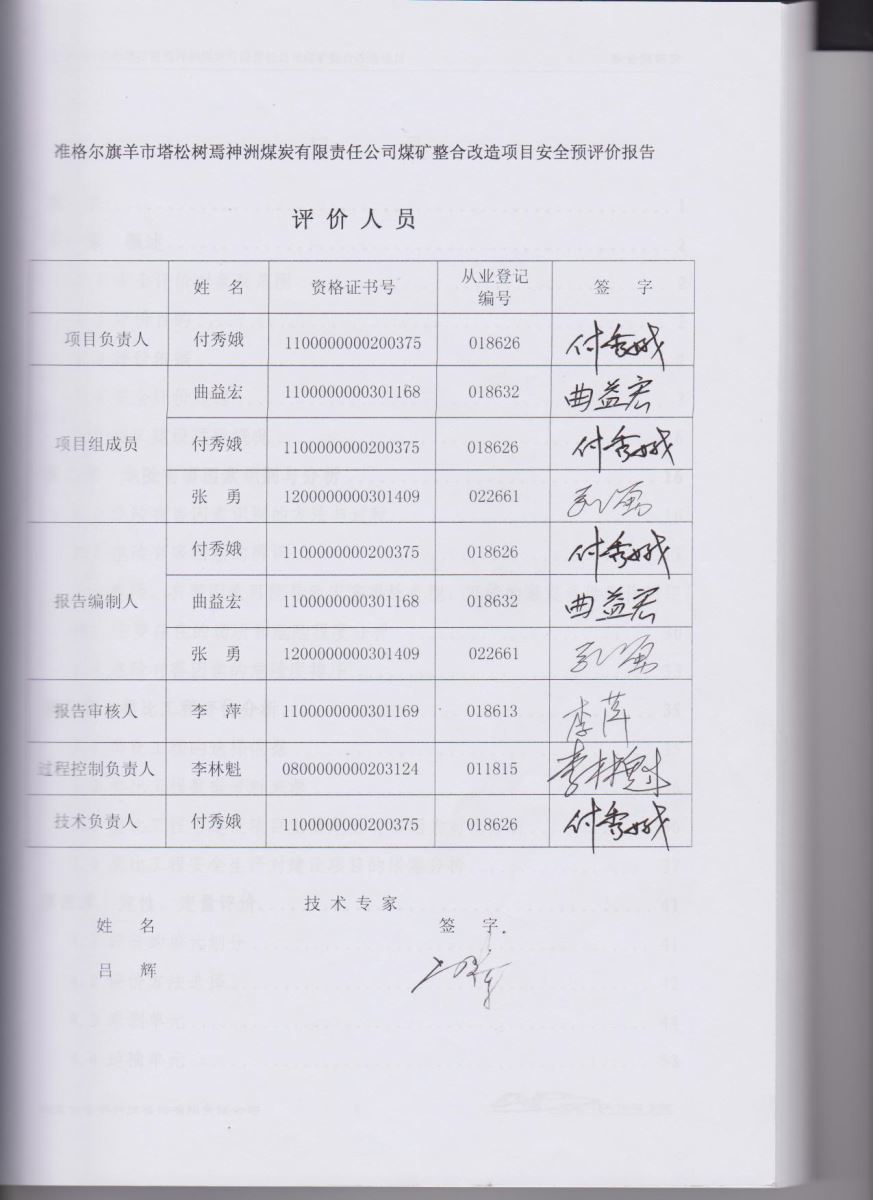 准格尔旗羊市塔松树焉神洲煤炭有限责任公司煤矿整合改造项目安全预评价报告
评价人员
姓 名 资格证书号 从业登记编号 签 字
项目负责人 付秀娥 1100000000200375 018626 付秀娥
项目组成员 曲益宏 1100000000301168 018632 曲益宏
付秀娥 1100000000200375 018626 付秀娥
张 勇 1200000000301409 022661
报告编制人 付秀娥 1100000000200375 018626 付秀娥
曲益宏 1100000000301168 018632 曲益宏
张 勇 1200000000301409 022661
报告审核人 李 萍 1100000000301169 018613 李萍
过程控制负责人 李林魁 0800000000203124 011815 李林魁
技术负责人 付秀娥 1100000000200375 018626 付秀娥
技术专家
姓 名 签 字
吕 辉